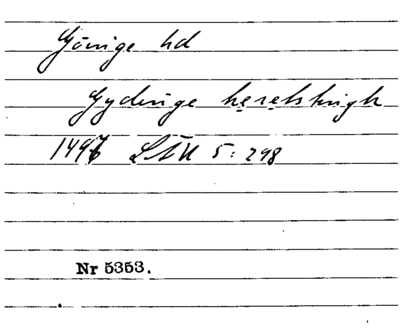 Göinge hd
Gydinge herelstingh
1497 LÄU 5: 298
Nr 5353.